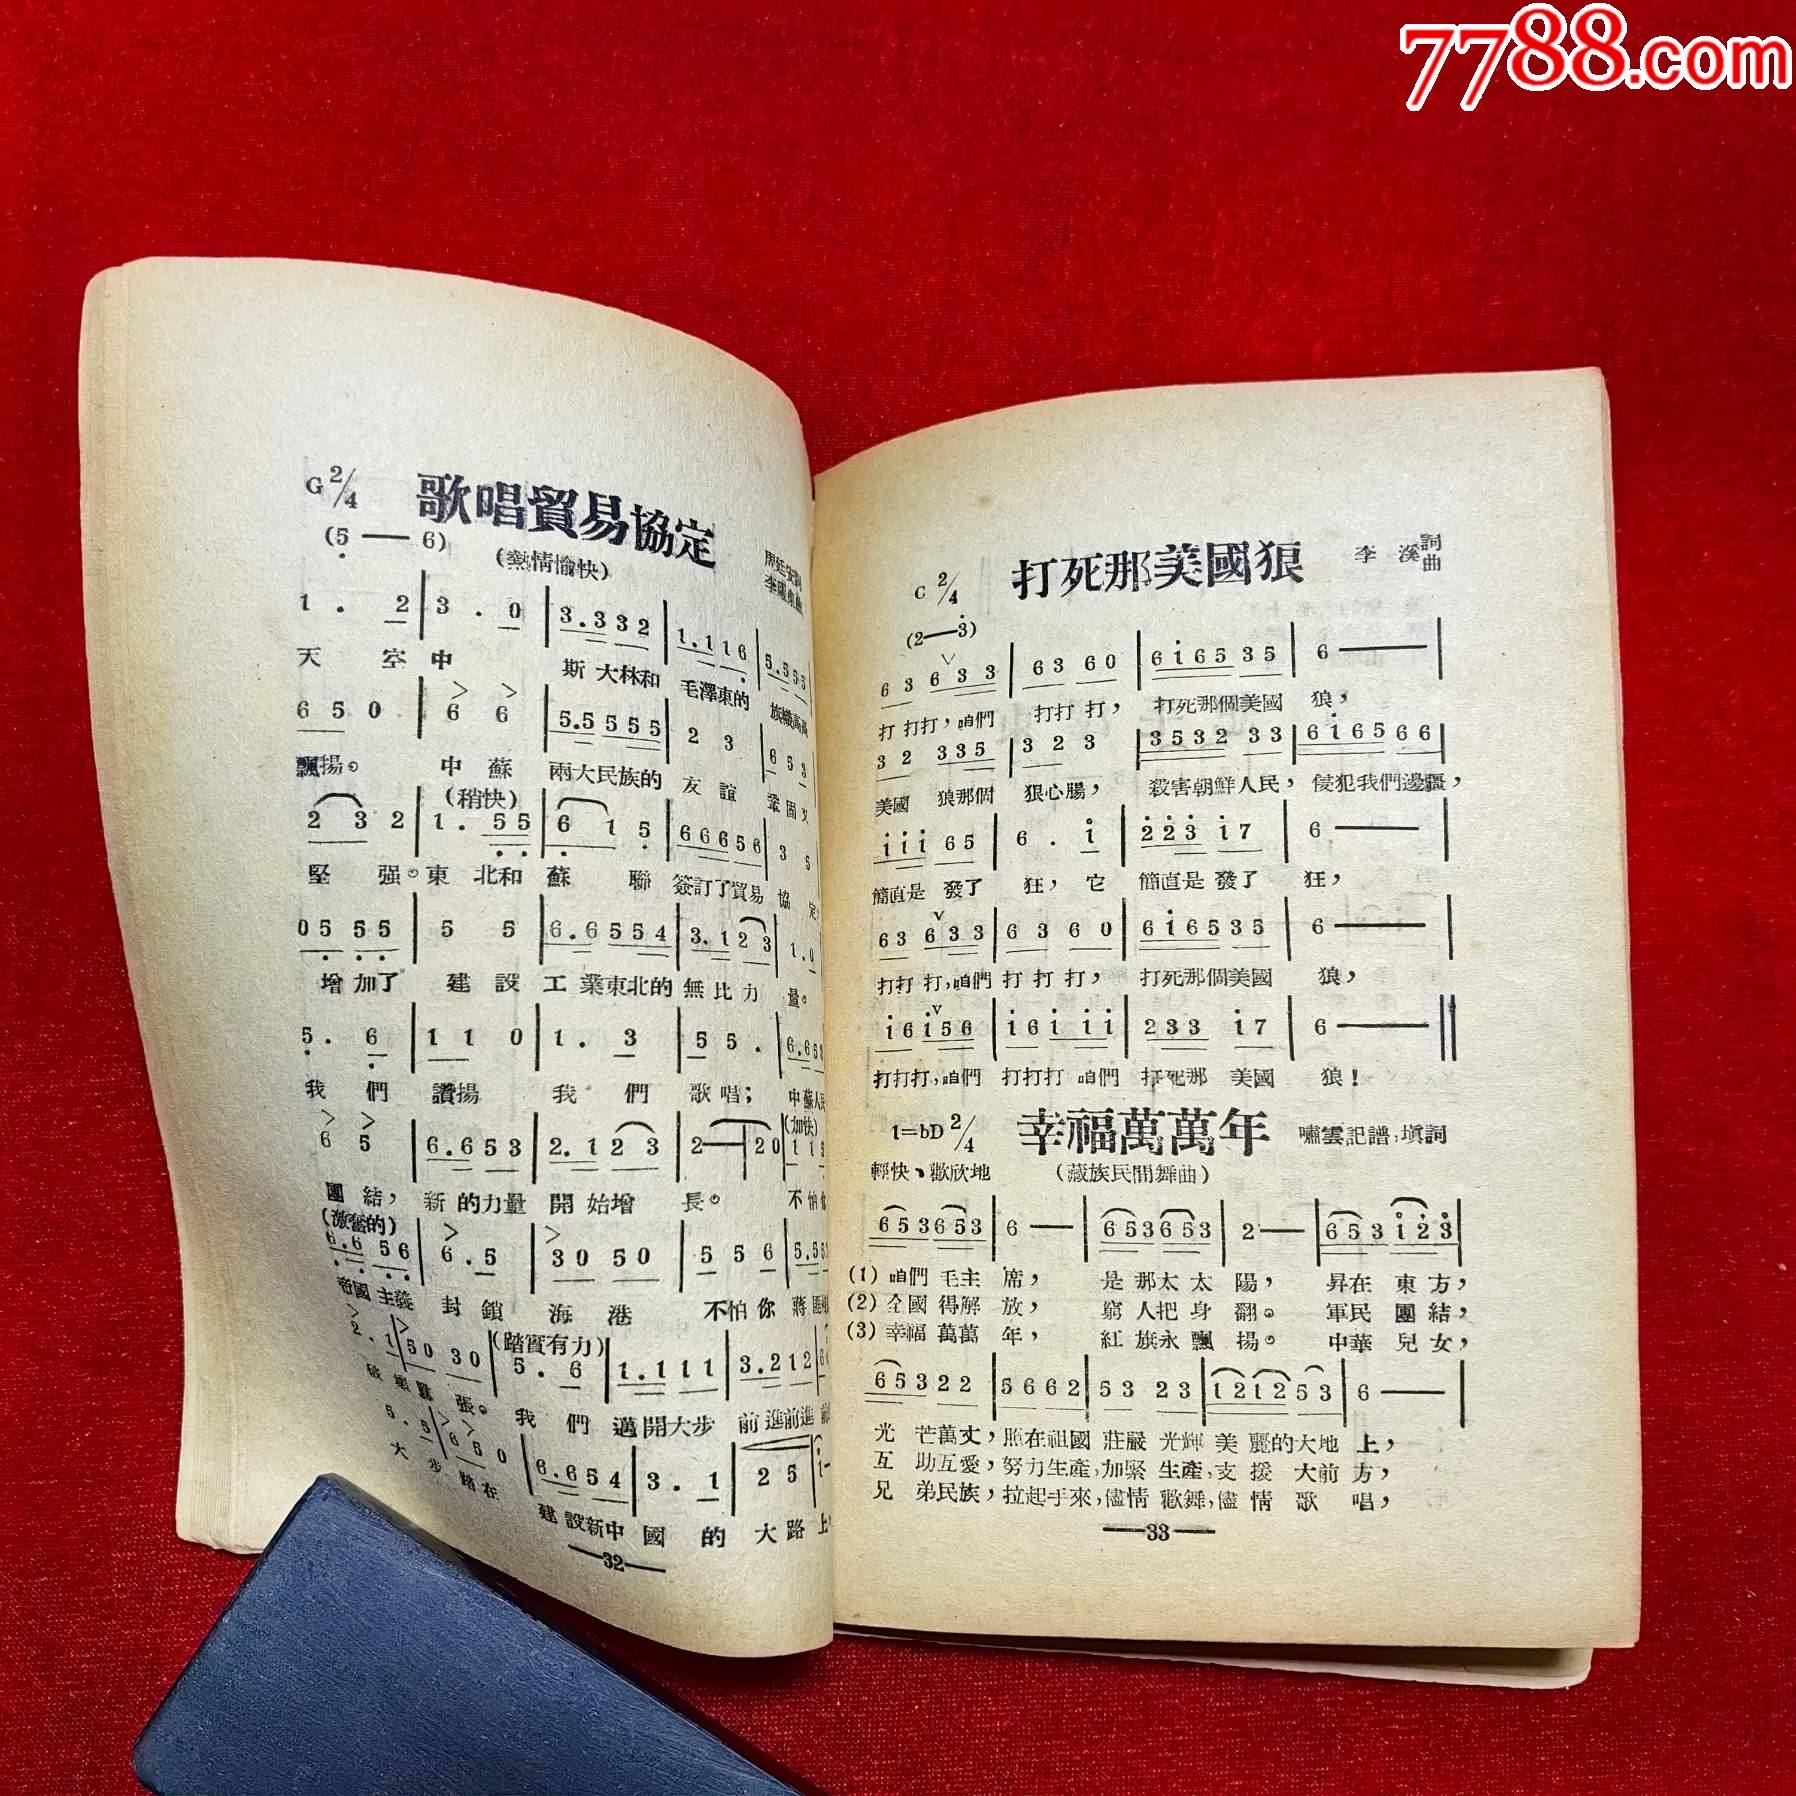 7788.com
歌唱貿易協定
G 2/4
(5 —— 6)
(熱情愉快)
1 . 2 | 3 . 0 | 3.332 | 1.116 | 5.555
天 空中 斯大林和 毛澤東的
6 5 0 | 6 6 | 5.5 555 | 2 3 | 6 5 3
飄揚。 中蘇 兩大民族的 友誼 鞏固又
(稍快)
2 3 2 | 1 . 55 | 6 1 5 | 66656 | 3 5
堅 强。東 北和 蘇 聯 簽訂了貿易 協 定,
05 55 | 5 5 | 6.6554 | 3.123 | 1.0
增加了 建設 工業東北的 無比力 量。
5 . 6 | 1 1 0 | 1 . 3 | 5 5 . | 6.653
我 們 讚揚 我 們 歌唱; 中蘇人民
(加快)
6 5 | 6.653 | 2.123 | 2— | 20 | 1 1 5
團結, 新的力量 開始增 長。 不怕你
(激奮的)
6.6 56 | 6.5 | 30 50 | 5 5 6 | 5.5
帝國主義 封鎖 海港 不怕你 蔣匪
(踏實有力)
2.1 | 50 30 | 5 . 6 | 1.111 | 3.212
張。 我 們 邁開大步 前進前進
5 . 5 | 6 5 0 | 6.654 | 3 . 1 | 2 5 | i—
大 步 踏在 建設新中 國 的 大路 上
—32—
打死那美國狼
李溪 詞曲
C 2/4
(2——3)
6 3 6 3 3 | 6 3 6 0 | 6 i 6 5 3 5 | 6 —— |
打 打打,咱們 打打 打, 打死那個美國 狼,
3 2 3 3 5 | 3 2 3 | 3 5 3 2 3 3 | 6 i 6 5 6 6 |
美國 狼那個 狠心腸, 殺害朝鮮人民,侵犯我們邊疆,
i i i 6 5 | 6 . i | 2 2 3 i 7 | 6 —— |
簡直是 發了 狂,它 簡直是 發了 狂,
6 3 6 3 3 | 6 3 6 0 | 6 i 6 5 3 5 | 6 —— |
打打 打,咱們 打 打 打, 打死那個美國 狼,
i 6 i 5 6 | i 6 i i i | 2 3 3 i 7 | 6 —— ||
打打打,咱們 打打打 咱們 打死那 美國 狼!
幸福萬萬年
1=bD 2/4
嘯雲記譜,填詞
輕快、歡欣地
(藏族民間舞曲)
6 5 3 6 5 3 | 6 — | 6 5 3 6 5 3 | 2 — | 6 5 3 i 2 3 |
(1) 咱們 毛主 席, 是那太太 陽, 昇在 東方,
(2) 全國 得解 放, 窮人把身 翻。 軍民 團結,
(3) 幸福 萬萬 年, 紅旗永飄 揚。 中華 兒女,
6 5 3 2 2 | 5 6 6 2 | 5 3 2 3 | 1 2 1 2 5 3 | 6 —— |
光 芒萬丈,照在祖國 莊嚴 光輝 美 麗的大地 上,
互 助互愛,努力生產,加緊 生產,支 援 大前 方,
兄 弟民族,拉起手來,儘情 歡舞,儘 情 歌 唱,
—33—